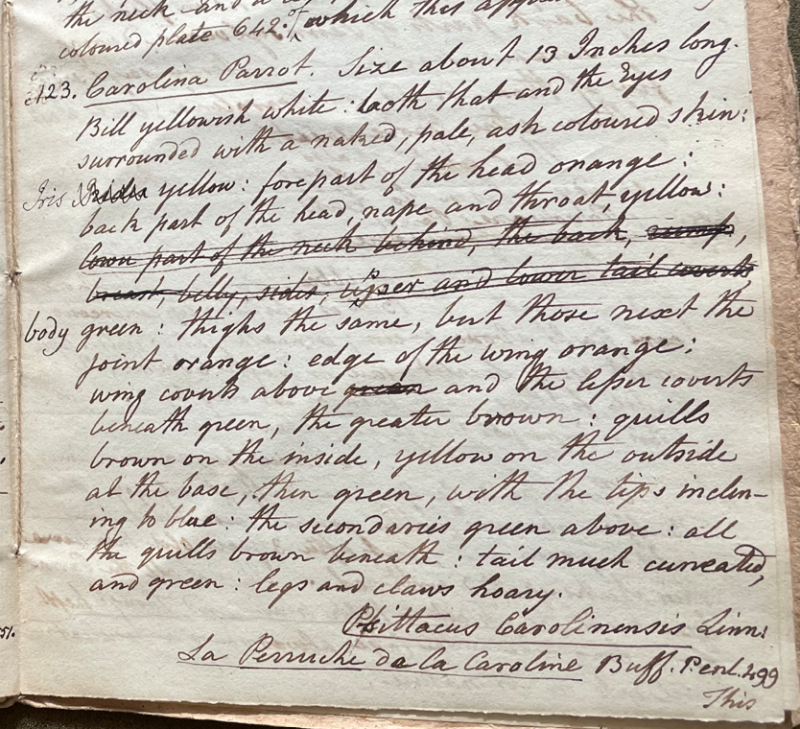 the neck and a
coloured plate 642. of which this
123. Carolina Parrot. Size about 13 Inches long.
Bill yellowish white: both that and the Eyes
surrounded with a naked, pale, ash coloured skin:
Iris yellow: forepart of the head orange:
back part of the head, nape and throat, yellow:
lower part of the neck behind, the back, rump,
breast, belly, sides, upper and lower tail coverts
body green: thighs the same, but those next the
joint orange: edge of the wing orange:
wing coverts above green and the lesser coverts
beneath green, the greater brown: quills
brown on the inside, yellow on the outside
at the base, then green, with the tips inclin-
ing to blue: the secondaries green above: all
the quills brown beneath: tail much cuneated,
and green: legs and claws hoary.
Psittacus Carolinensis Linn:
La Perruche da la Caroline Buff. P. enl. 499
This